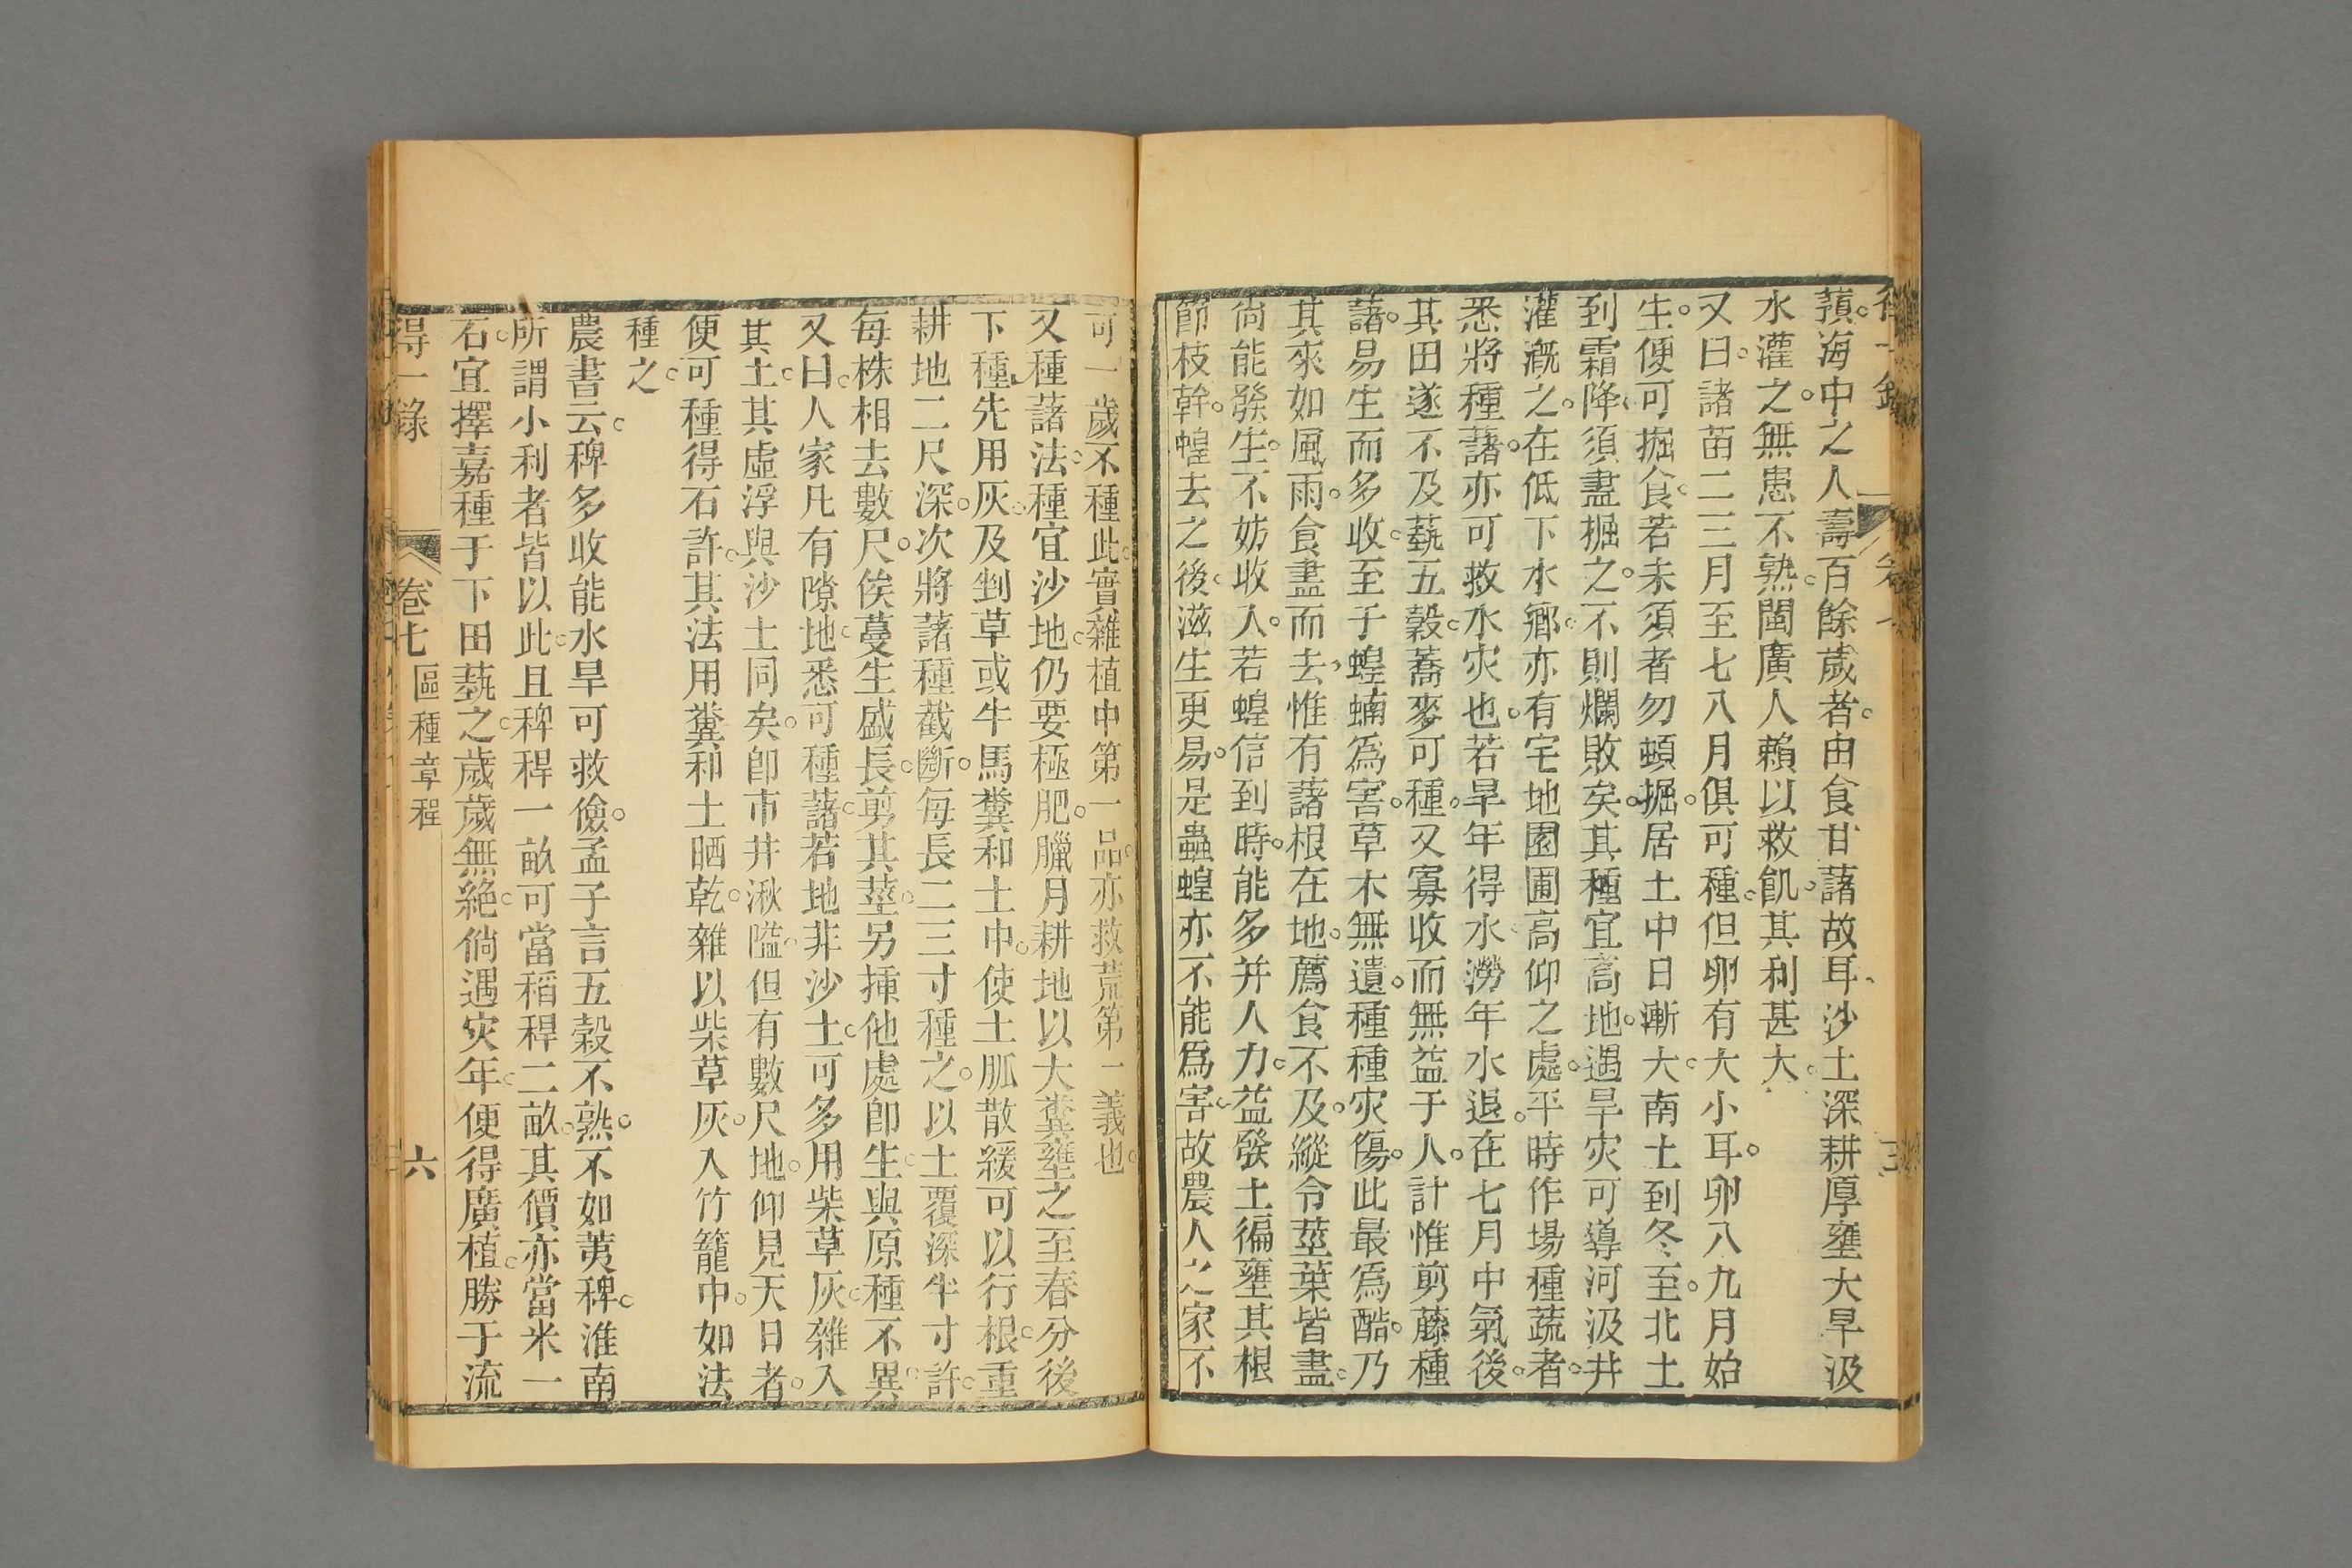 嶺海中之人壽百餘歲者。由食甘藷故耳、沙土深耕厚壅大旱汲
水灌之。無患不熟。閩廣人賴以救飢。其利甚大。
又曰。諸苗二三月至七八月俱可種。但卵有大小耳。卵八九月始
生。便可掘食。若未須者勿頓掘。居土中日漸大。南土到冬至。北土
到霜降、須盡掘之。不則爛敗矣。其種宜高地。遇旱灾可導河汲井
灌漑之。在低下水鄕。亦有宅地園圃高仰之處。平時作場種蔬者。
悉將種藷。亦可救水灾也。若旱年得水。澇年水退。在七月中氣後。
其田遂不及蓺五穀。蕎麥可種。又寡收而無益于人。計惟剪藤種
藷。易生而多收。至于蝗蝻爲害。草木無遺。種種灾傷。此最爲酷。乃
其來如風雨。食盡而去、惟有藷根在地。薦食不及。縱令莖葉皆盡。
尙能發生。不妨收入。若蝗信到時。能多并人力。益發土徧壅其根
節枝幹。蝗去之後。滋生更易。是蟲蝗亦不能爲害。故農人之家不
可一歲不種此。實雜植中第一品。亦救荒第一義也。
又種藷法。種宜沙地。仍要極肥。臘月耕地以大糞壅之至春分後
下種、先用灰。及剉草或牛馬糞和土中。使土脈散緩可以行根。重
耕地二尺深。次將藷種截斷。每長二三寸種之。以土覆深半寸許。
每株相去數尺。俟蔓生盛長。剪其莖。另揷他處卽生。與原種不異。
又曰。人家凡有隙地。悉可種藷。若地非沙土。可多用柴草灰。雜入
其土。其虛浮與沙土同矣。卽市井湫隘、但有數尺地。仰見天日者。
便可種得石許。其法用糞和土晒乾。雜以柴草灰。入竹籠中。如法
種之。
農書云。稗多收能水旱可救儉。孟子言五穀不熟。不如荑稗。淮南
所謂小利者皆以此。且稗稈一畝可當稻稈二畝。其價亦當米一
石。宜擇嘉種于下田蓺之。歲歲無絶。倘遇灾年。便得廣植。勝于流
得一錄 卷七 區種章程 六